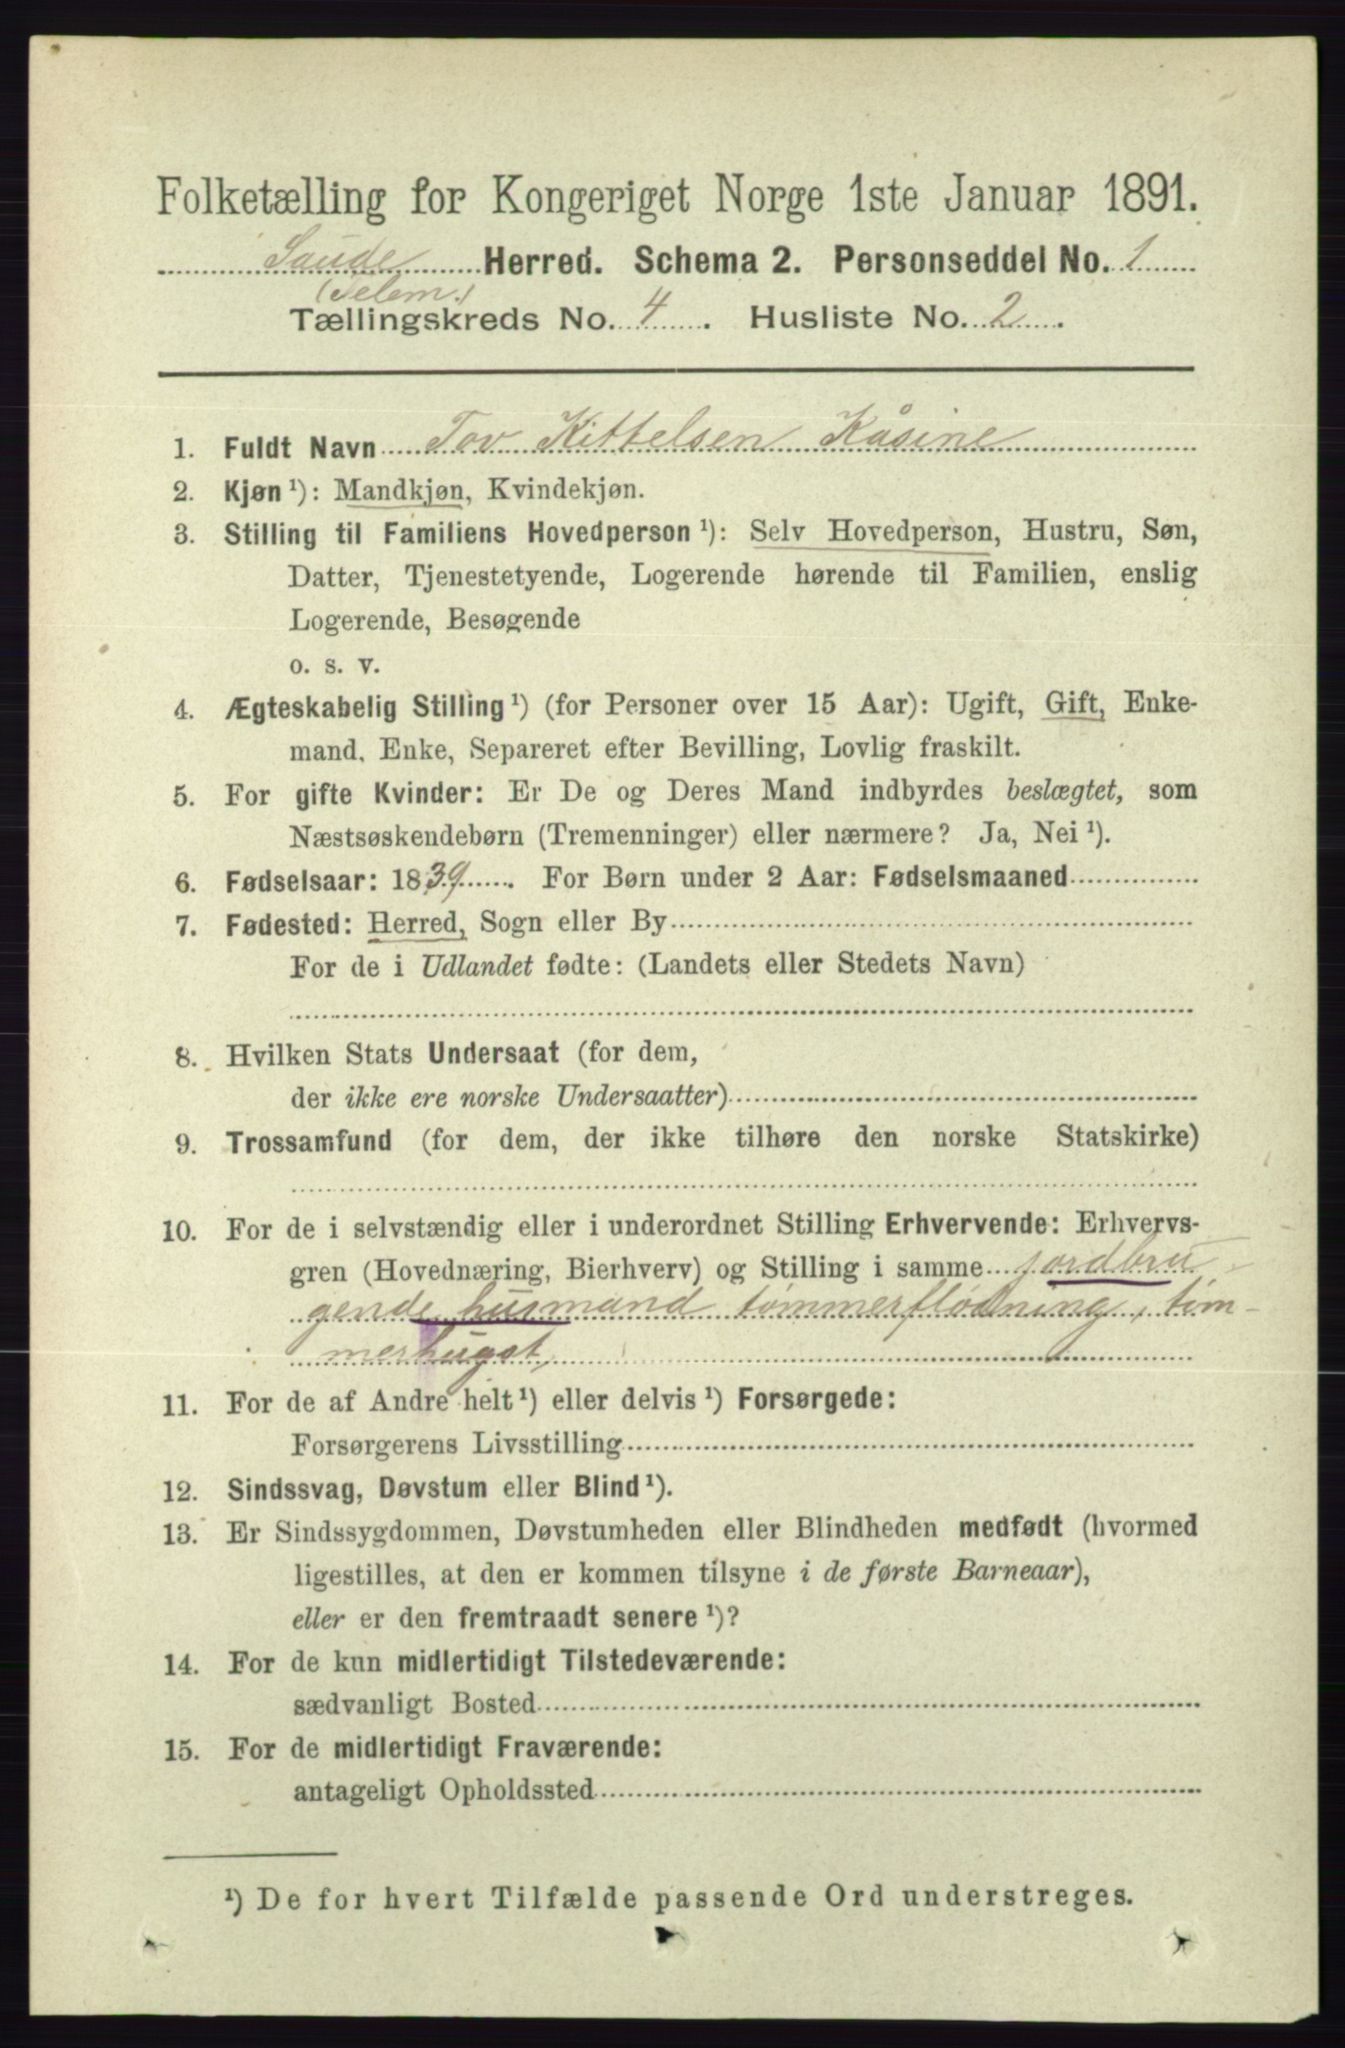 Folketælling for Kongeriget Norge 1ste Januar 1891.
Saude Herred. Schema 2. Personseddel No. 1
(Telem.)
Tællingskreds No. 4. Husliste No. 2.
1. Fuldt Navn Tov Kittelsen Kåsine
2. Kjøn ¹): Mandkjøn, Kvindekjøn.
3. Stilling til Familiens Hovedperson ¹): Selv Hovedperson, Hustru, Søn,
Datter, Tjenestetyende, Logerende hørende til Familien, enslig
Logerende, Besøgende
o. s. v.
4. Ægteskabelig Stilling ¹) (for Personer over 15 Aar): Ugift, Gift, Enke-
mand, Enke, Separeret efter Bevilling, Lovlig fraskilt.
5. For gifte Kvinder: Er De og Deres Mand indbyrdes beslægtet, som
Næstsøskendebørn (Tremenninger) eller nærmere? Ja, Nei ¹).
6. Fødselsaar: 1839. For Børn under 2 Aar: Fødselsmaaned
7. Fødested: Herred, Sogn eller By
For de i Udlandet fødte: (Landets eller Stedets Navn)
8. Hvilken Stats Undersaat (for dem,
der ikke ere norske Undersaatter)
9. Trossamfund (for dem, der ikke tilhøre den norske Statskirke)
10. For de i selvstændig eller i underordnet Stilling Erhvervende: Erhvervs-
gren (Hovednæring, Bierhverv) og Stilling i samme jordbru-
gende husmand tømmerflødning, tøm-
merhugst,
11. For de af Andre helt ¹) eller delvis ¹) Forsørgede:
Forsørgerens Livsstilling
12. Sindssvag, Døvstum eller Blind ¹).
13. Er Sindssygdommen, Døvstumheden eller Blindheden medfødt (hvormed
ligestilles, at den er kommen tilsyne i de første Barneaar),
eller er den fremtraadt senere ¹)?
14. For de kun midlertidigt Tilstedeværende:
sædvanligt Bosted
15. For de midlertidigt Fraværende:
antageligt Opholdssted
¹) De for hvert Tilfælde passende Ord understreges.